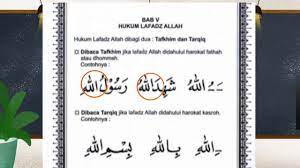 BAB V
HUKUM LAFADZ ALLAH
Hukum Lafadz Allah dibagi dua : Tafkhim dan Tarqiq
Dibaca Tafkhim jika lafadz Allah didahului harakat fathah
atau dhommeh.
Contohnya :
ـَـُ اللهُ شَهِدَ اللهُ رَسُوْلُ اللهِ
Dibaca Tarqiq jika lafadz Allah didahului harokat kasroh.
Contohnya :
ـِـ اللهِ بِاللهِ بِسْمِ اللهِ